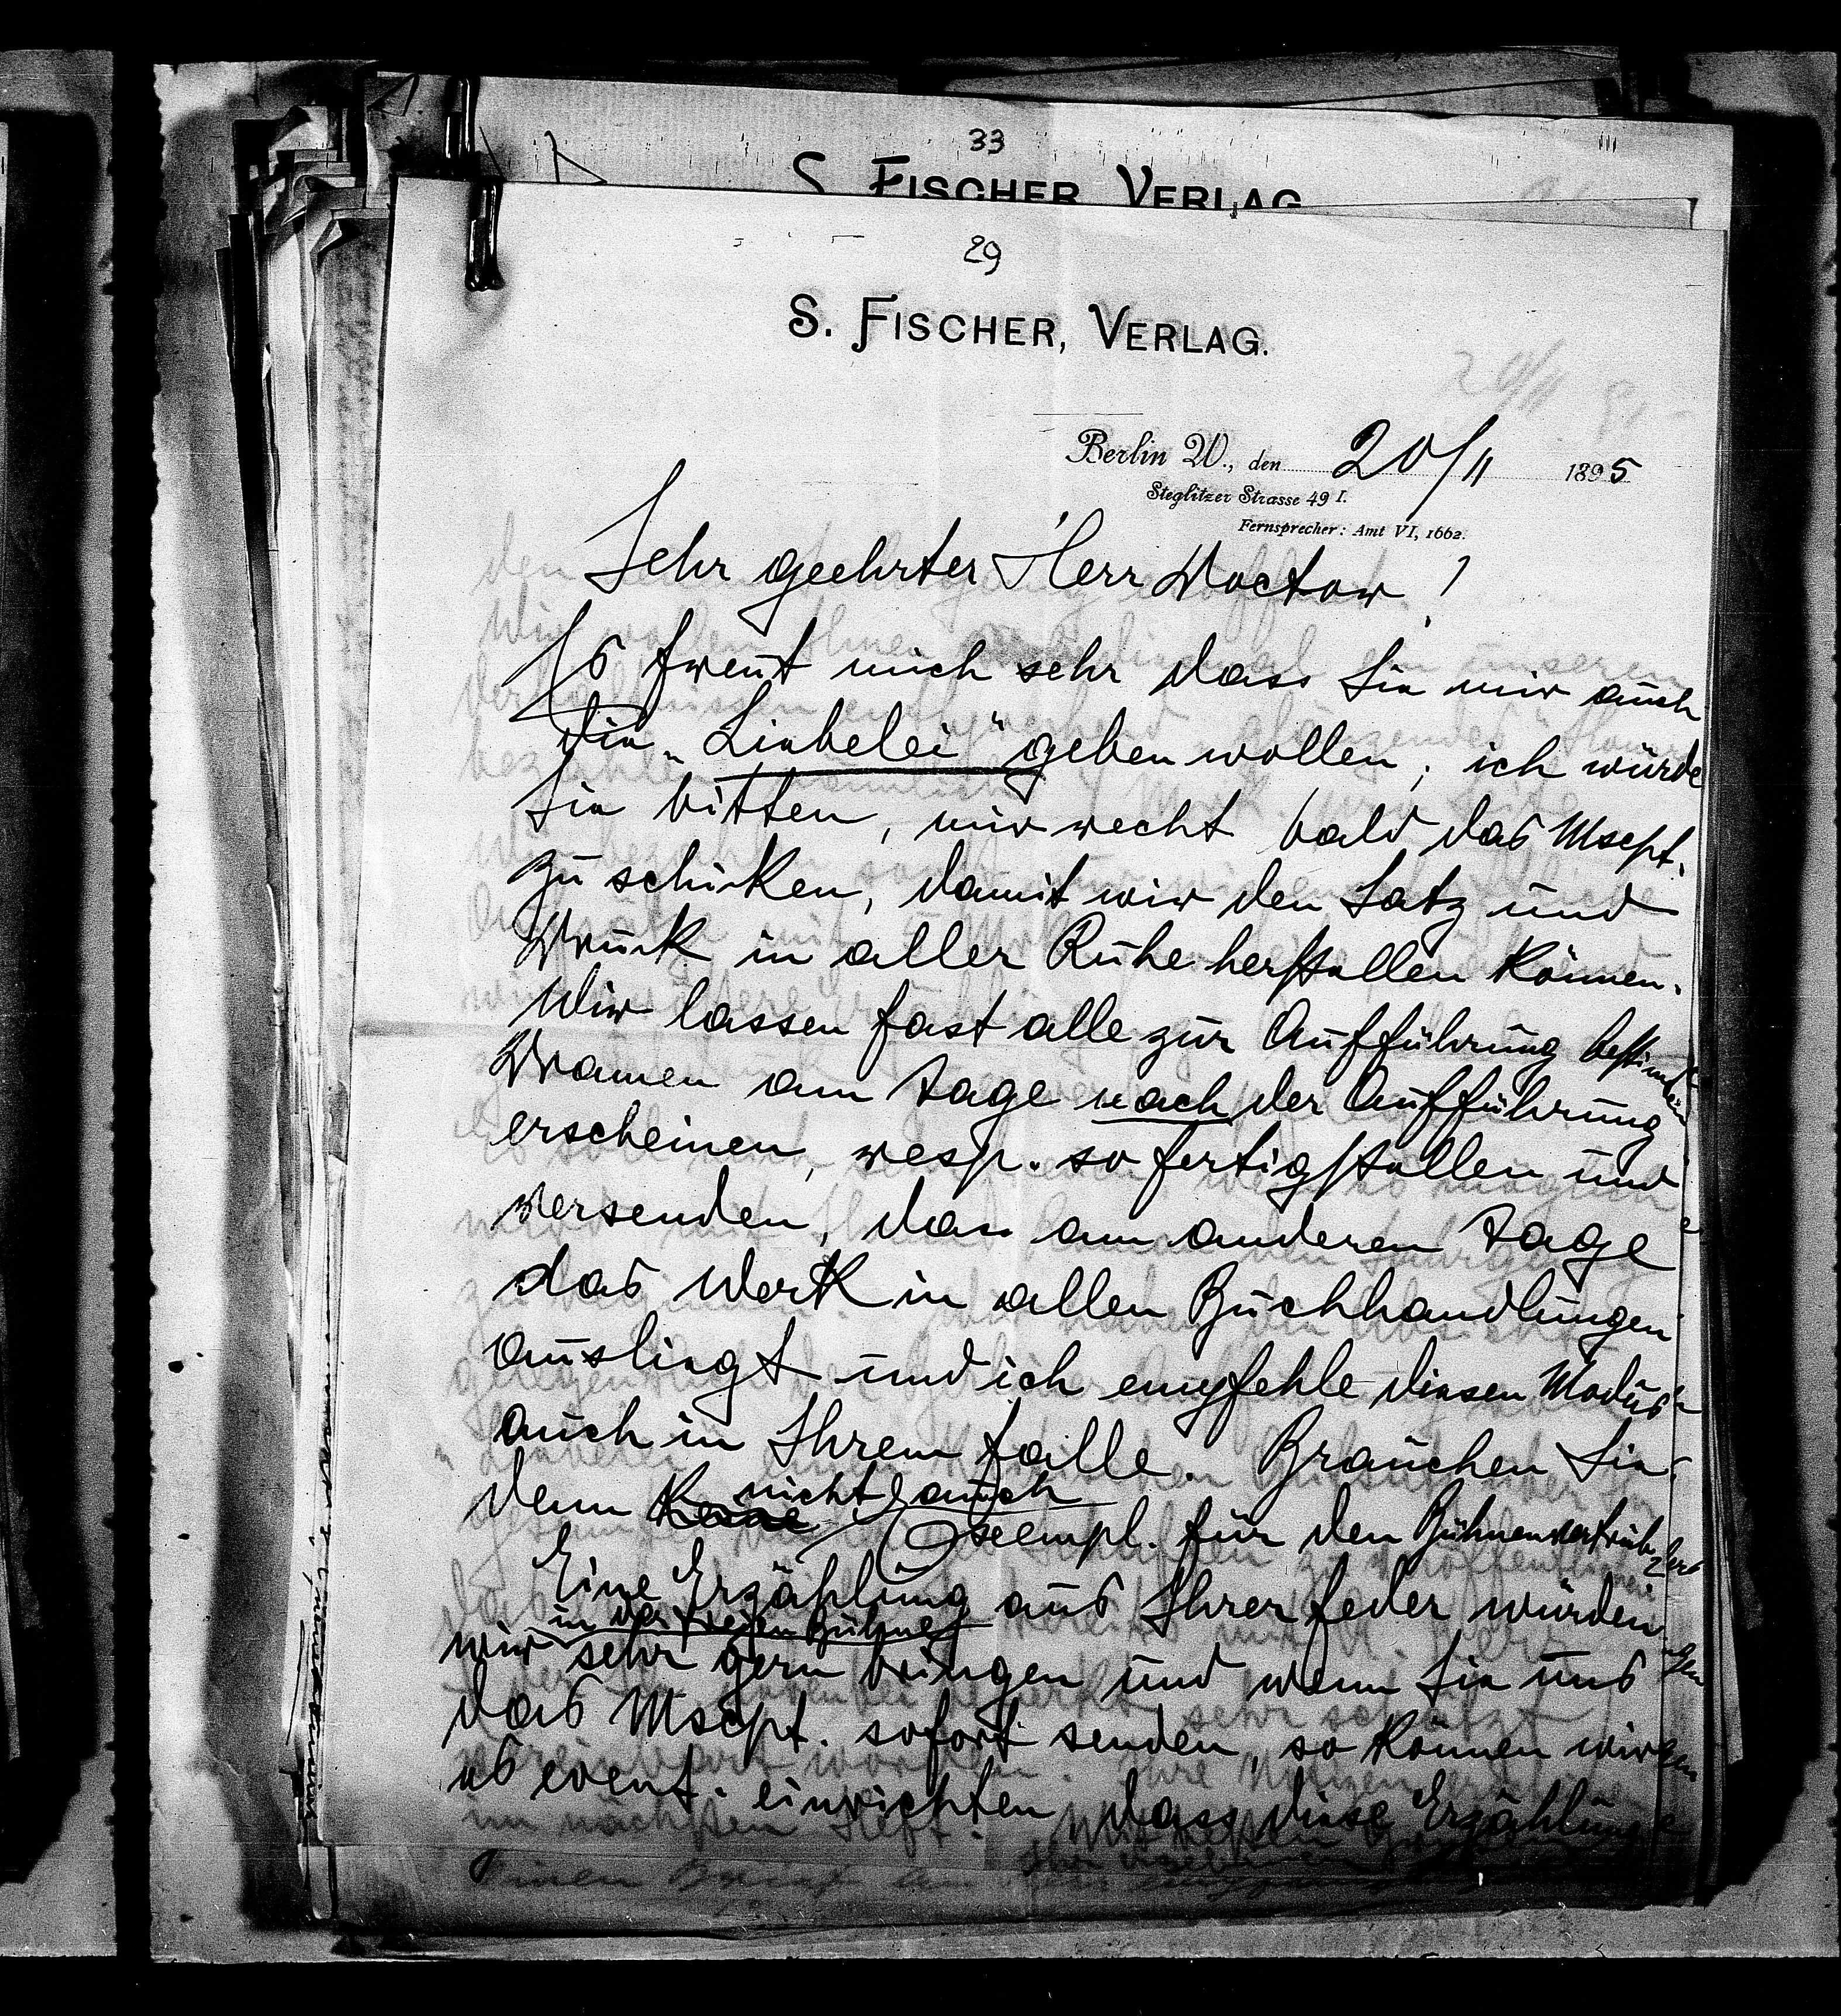 33
S. FISCHER, VERLAG.
29
S. FISCHER, VERLAG.
Berlin W., den 20/11 1895
Steglitzer Strasse 49 I.
Fernsprecher: Amt VI, 1662.
Sehr geehrter Herr Doctor!
Es freut mich sehr dass Sie mir auch
die „Liebelei“ geben wollen; ich würde
Sie bitten, mir recht bald das Mscpt.
zu schicken, damit wir den Satz und
Druck in aller Ruhe herstellen können.
Wir lassen fast alle zur Aufführung bestimmten
Dramen am Tage nach der Aufführung
erscheinen, resp. so fertigstellen und
versenden, dass am anderen Tage
das Werk in allen Buchhandlungen
ausliegt und ich empfehle diesen Modus
auch in Ihrem Falle. Brauchen Sie
denn keine nicht auch Exempl. für den Bühnenvertrieb?
Eine Erzählung aus Ihrer Feder würden
wir in der Freien Bühne sehr gern bringen und wenn Sie uns
das Mscpt. sofort senden, so können wir
es event. einrichten dass diese Erzählung